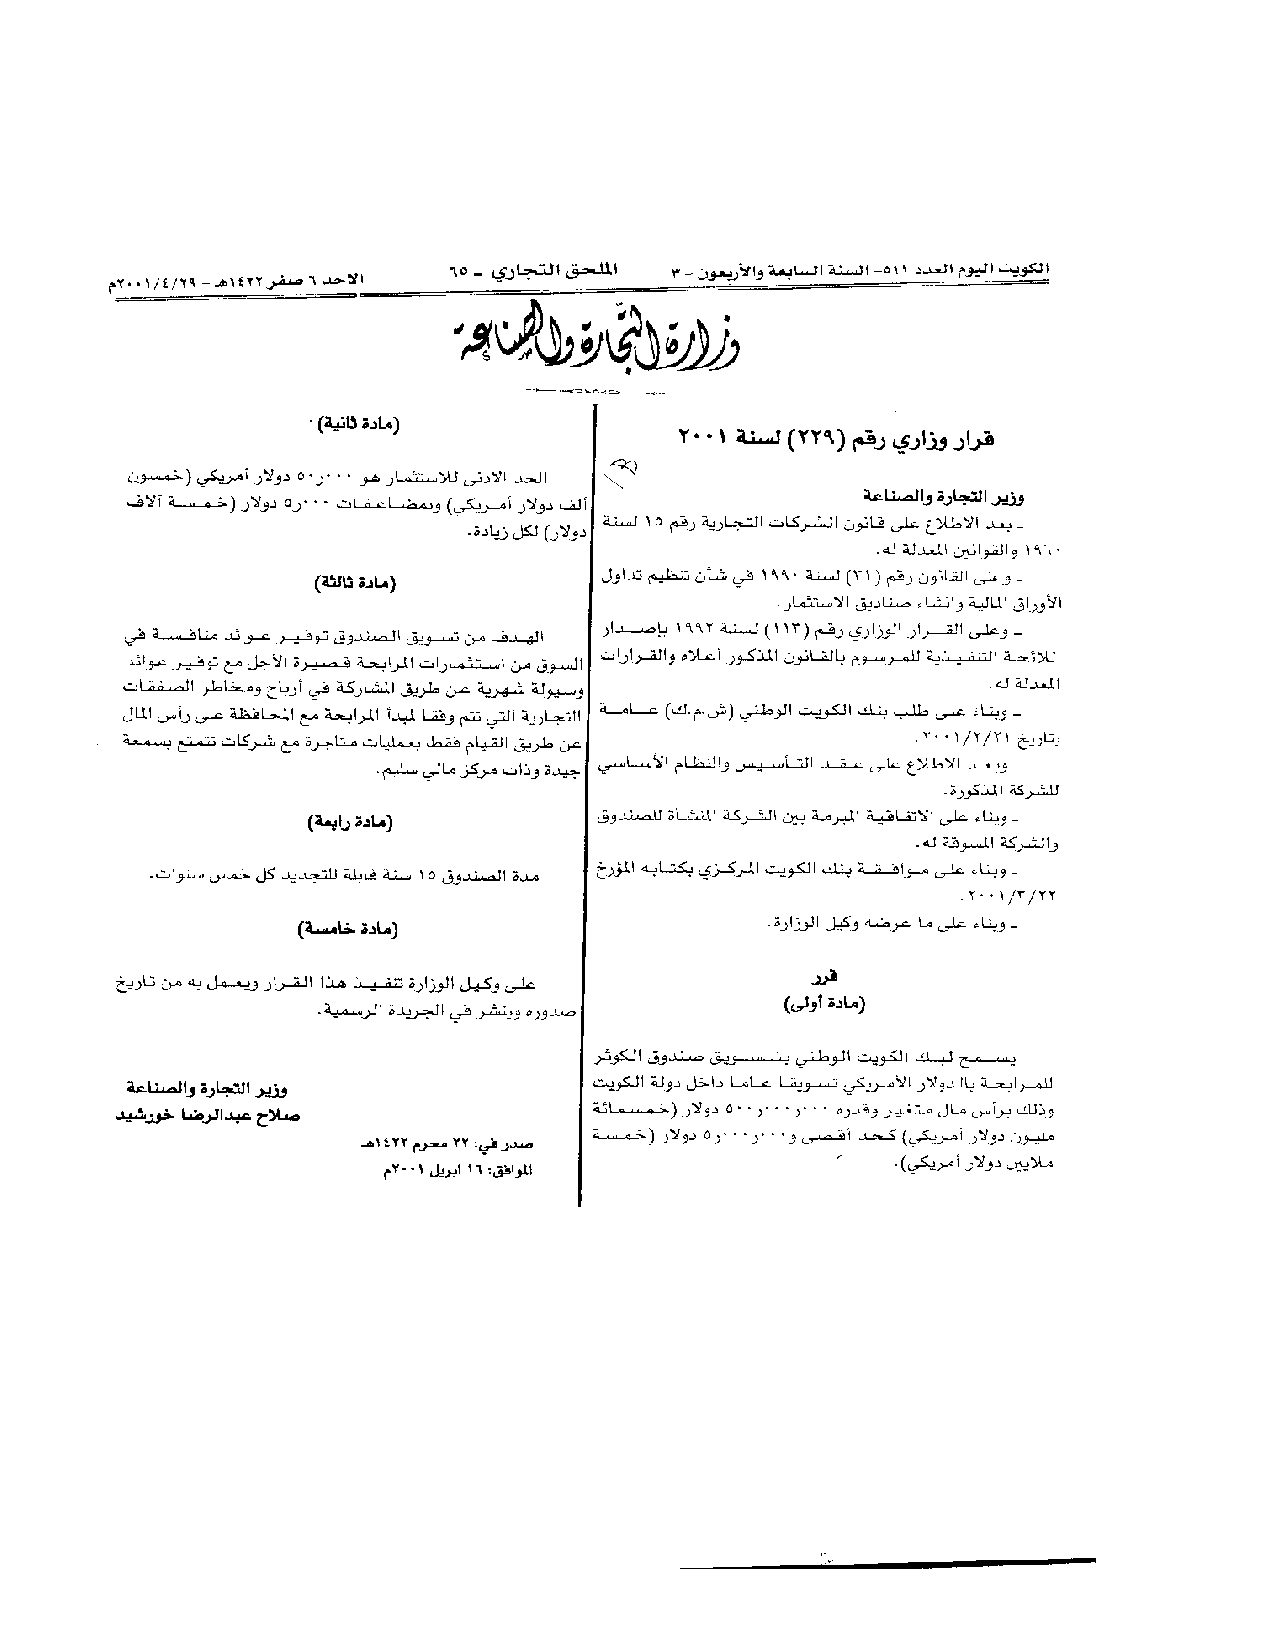 الكويت اليوم العدد ٥١١- السنة السابعة والأربعون - ٣
الملحق التجاري - ٦٥
الاحد ٦ صفر ١٤٢٢هـ - ٢٠٠١/٤/٢٩م
وزارة التجارة والصناعة
قرار وزاري رقم (٢٢٩) لسنة ٢٠٠١
وزير التجارة والصناعة
- بعد الاطلاع على قانون الشركات التجارية رقم ١٥ لسنة
١٩٦٠ والقوانين المعدلة له.
- وعلى القانون رقم (٣١) لسنة ١٩٩٠ في شأن تنظيم تداول
الأوراق المالية وانشاء صناديق الاستثمار.
- وعلى القرار الوزاري رقم (١١٣) لسنة ١٩٩٢ بإصدار
اللائحة التنفيذية للمرسوم بالقانون المذكور أعلاه والقرارات
المعدلة له.
- وبناء على طلب بنك الكويت الوطني (ش.م.ك) عامة
بتاريخ ٢٠٠١/٢/٢١.
وبعد الاطلاع على عقد التأسيس والنظام الأساسي
للشركة المذكورة.
- وبناء على الاتفاقية المبرمة بين الشركة المنشأة للصندوق
والشركة المسوقة له.
- وبناء على موافقة بنك الكويت المركزي بكتابه المؤرخ
٢٠٠١/٣/٢٢.
- وبناء على ما عرضه وكيل الوزارة.
قرر
(مادة أولى)
يسمح لبنك الكويت الوطني بتسويق صندوق الكوثر
للمرابحة بالدولار الأمريكي تسويقا عاما داخل دولة الكويت
وذلك برأس مال متغير وقدره ٥٠٠ر٠٠٠ر٠٠٠ دولار (خمسمائة
مليون دولار أمريكي) كحد أقصى و٥ر٠٠٠ر٠٠٠ دولار (خمسة
ملايين دولار أمريكي).
(مادة ثانية)
الحد الادنى للاستثمار هو ٥٠ر٠٠٠ دولار أمريكي (خمسون
ألف دولار أمريكي) وبمضاعفات ٥ر٠٠٠ دولار (خمسة آلاف
دولار) لكل زيادة.
(مادة ثالثة)
الهدف من تسويق الصندوق توفير عوائد منافسة في
السوق من استثمارات المرابحة قصيرة الأجل مع توفير عوائد
وسيولة شهرية عن طريق المشاركة في أرباح ومخاطر الصفقات
التجارية التي تتم وفقا لمبدأ المرابحة مع المحافظة على رأس المال
عن طريق القيام فقط بعمليات متاجرة مع شركات تتمتع بسمعة
جيدة وذات مركز مالي سليم.
(مادة رابعة)
مدة الصندوق ١٥ سنة قابلة للتجديد كل خمس سنوات.
(مادة خامسة)
على وكيل الوزارة تنفيذ هذا القرار ويعمل به من تاريخ
صدوره وينشر في الجريدة الرسمية.
وزير التجارة والصناعة
صلاح عبدالرضا خورشيد
صدر في: ٢٢ محرم ١٤٢٢هـ
الموافق: ١٦ ابريل ٢٠٠١م